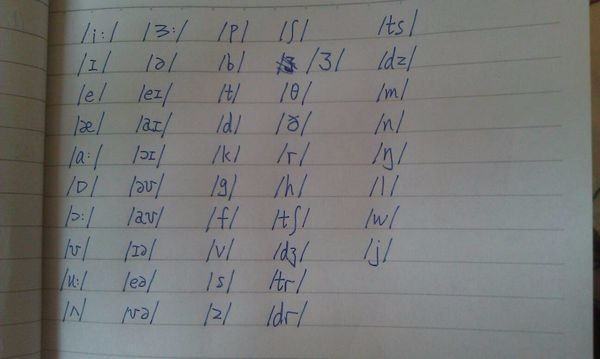 /i:/ /ɜ:/ /p/ /ʃ/ /ts/
/ɪ/ /ə/ /b/ /ʒ/ /dz/
/e/ /eɪ/ /t/ /θ/ /m/
/æ/ /aɪ/ /d/ /ð/ /n/
/a:/ /ɔɪ/ /k/ /r/ /ŋ/
/ɒ/ /əʊ/ /g/ /h/ /l/
/ɔ:/ /aʊ/ /f/ /tʃ/ /w/
/ʊ/ /ɪə/ /v/ /dʒ/ /j/
/u:/ /eə/ /s/ /tr/
/ʌ/ /ʊə/ /z/ /dr/